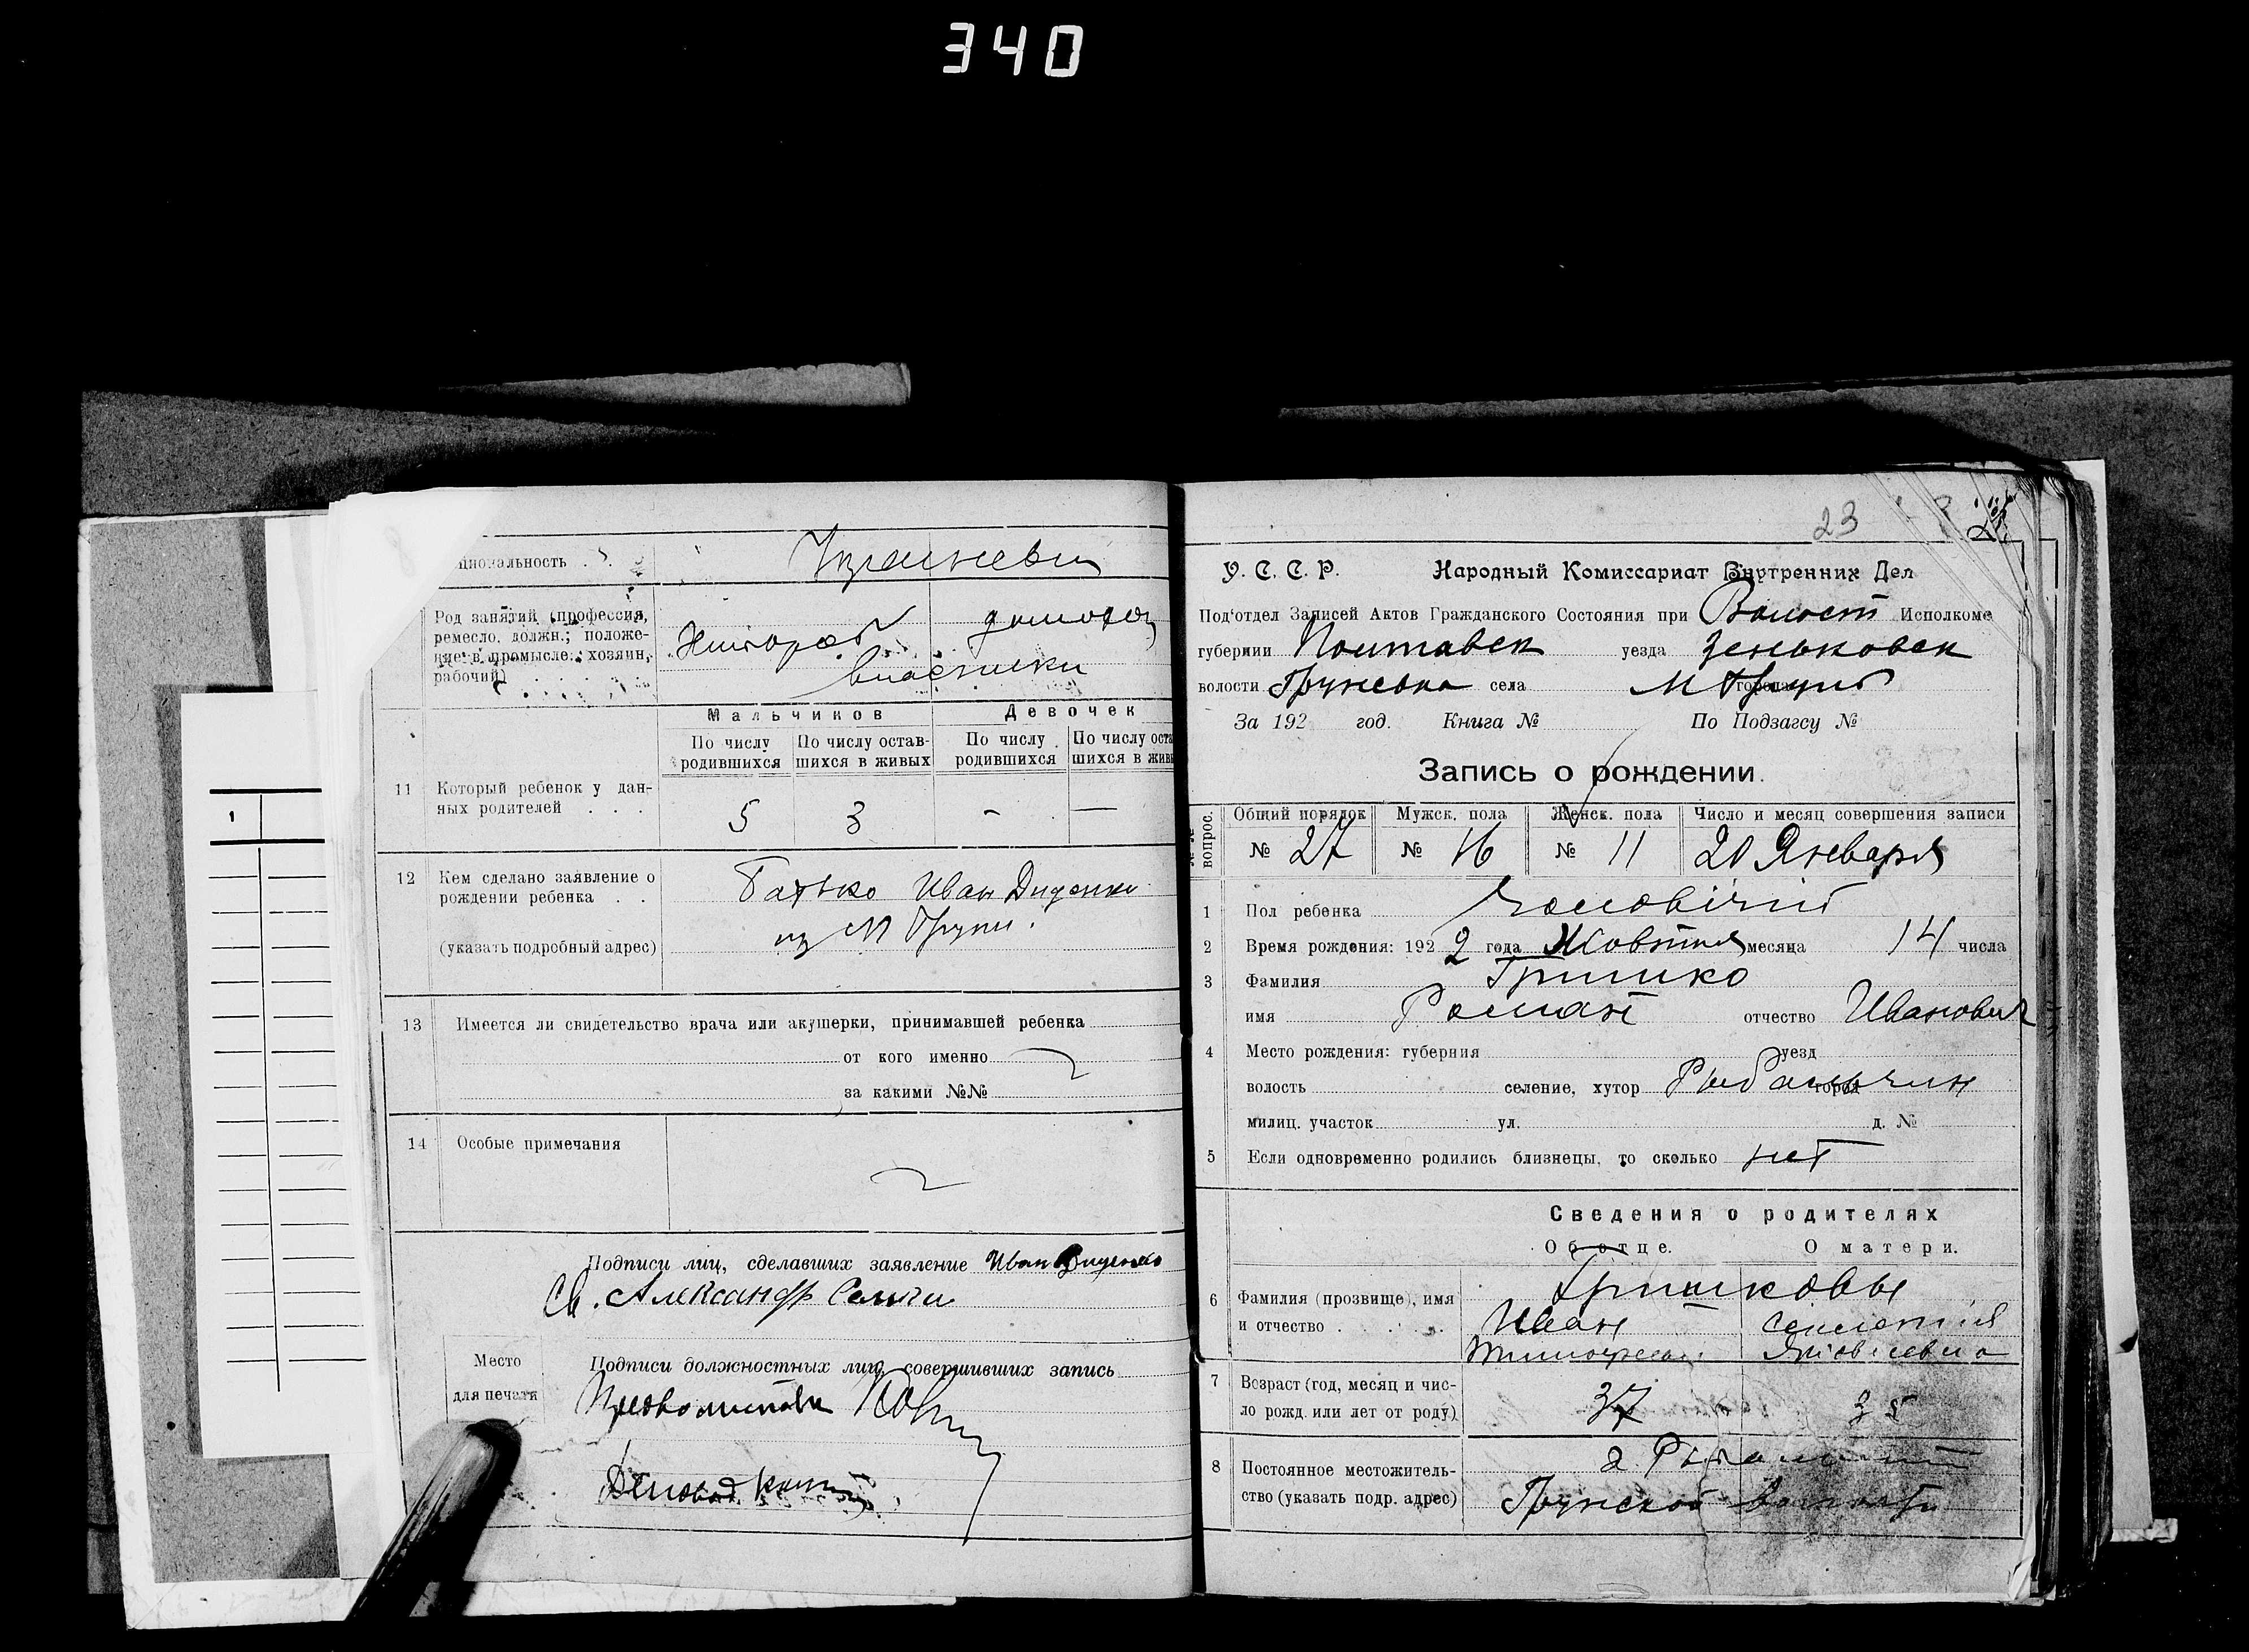 340
циональность
Украиневи
Род занятий (профессия,
ремесло, должн.; положе-
ние в промысле: хозяин,
рабочий)
Хлибороб
домохоз
власники
Мальчиков Девочек
По числу родившихся По числу остав-шихся в живых По числу родившихся По числу оста шихся в жив
11 Который ребенок у дан-
ных родителей . . .
5 3 - —
12 Кем сделано заявление о
рождении ребенка . .
(указать подробный адрес)
Батько Иван Диденко
из М Груни.
13 Имеется ли свидетельство врача или акушерки, принимавшей ребенка
от кого именно
за какими №№
14 Особые примечания
Подписи лиц, сделавших заявление Иван Диденко
Св. Александр
Место
для печати
Подписи должностных лиц, совершивших запись
23
У. С. С. Р. Народный Комиссариат Внутренних Дел
Под'отдел Записей Актов Гражданского Состояния при Волост Исполкоме
губернии Полтавск уезда Зеньковск
волости Грунська села М Грунь города
За 192 год. Книга № По Подзагсу №
Запись о рождении.
№№ вопрос.
Общий порядок Мужск. пола Женск. пола Число и месяц совершения записи
№ 27 № 16 № 11 20 Января
1 Пол ребенка Чоловічий
2 Время рождения: 1922 года Жовтня месяца 14 числа
3 Фамилия Гришко
имя Роман отчество Иванович
4 Место рождения: губерния уезд
волость селение, хутор Рыбальчин город
милиц. участок ул. д. №
5 Если одновременно родились близнецы, то сколько нет
Сведения о родителях
Об отце. О матери.
6 Фамилия (прозвище), имя
и отчество
Гришковы
Иван
Яковлевна
7 Возраст (год, месяц и чис-
ло рожд. или лет от роду)
37 35
8 Постоянное местожитель-
ство (указать подр. адрес)
Грунской волости